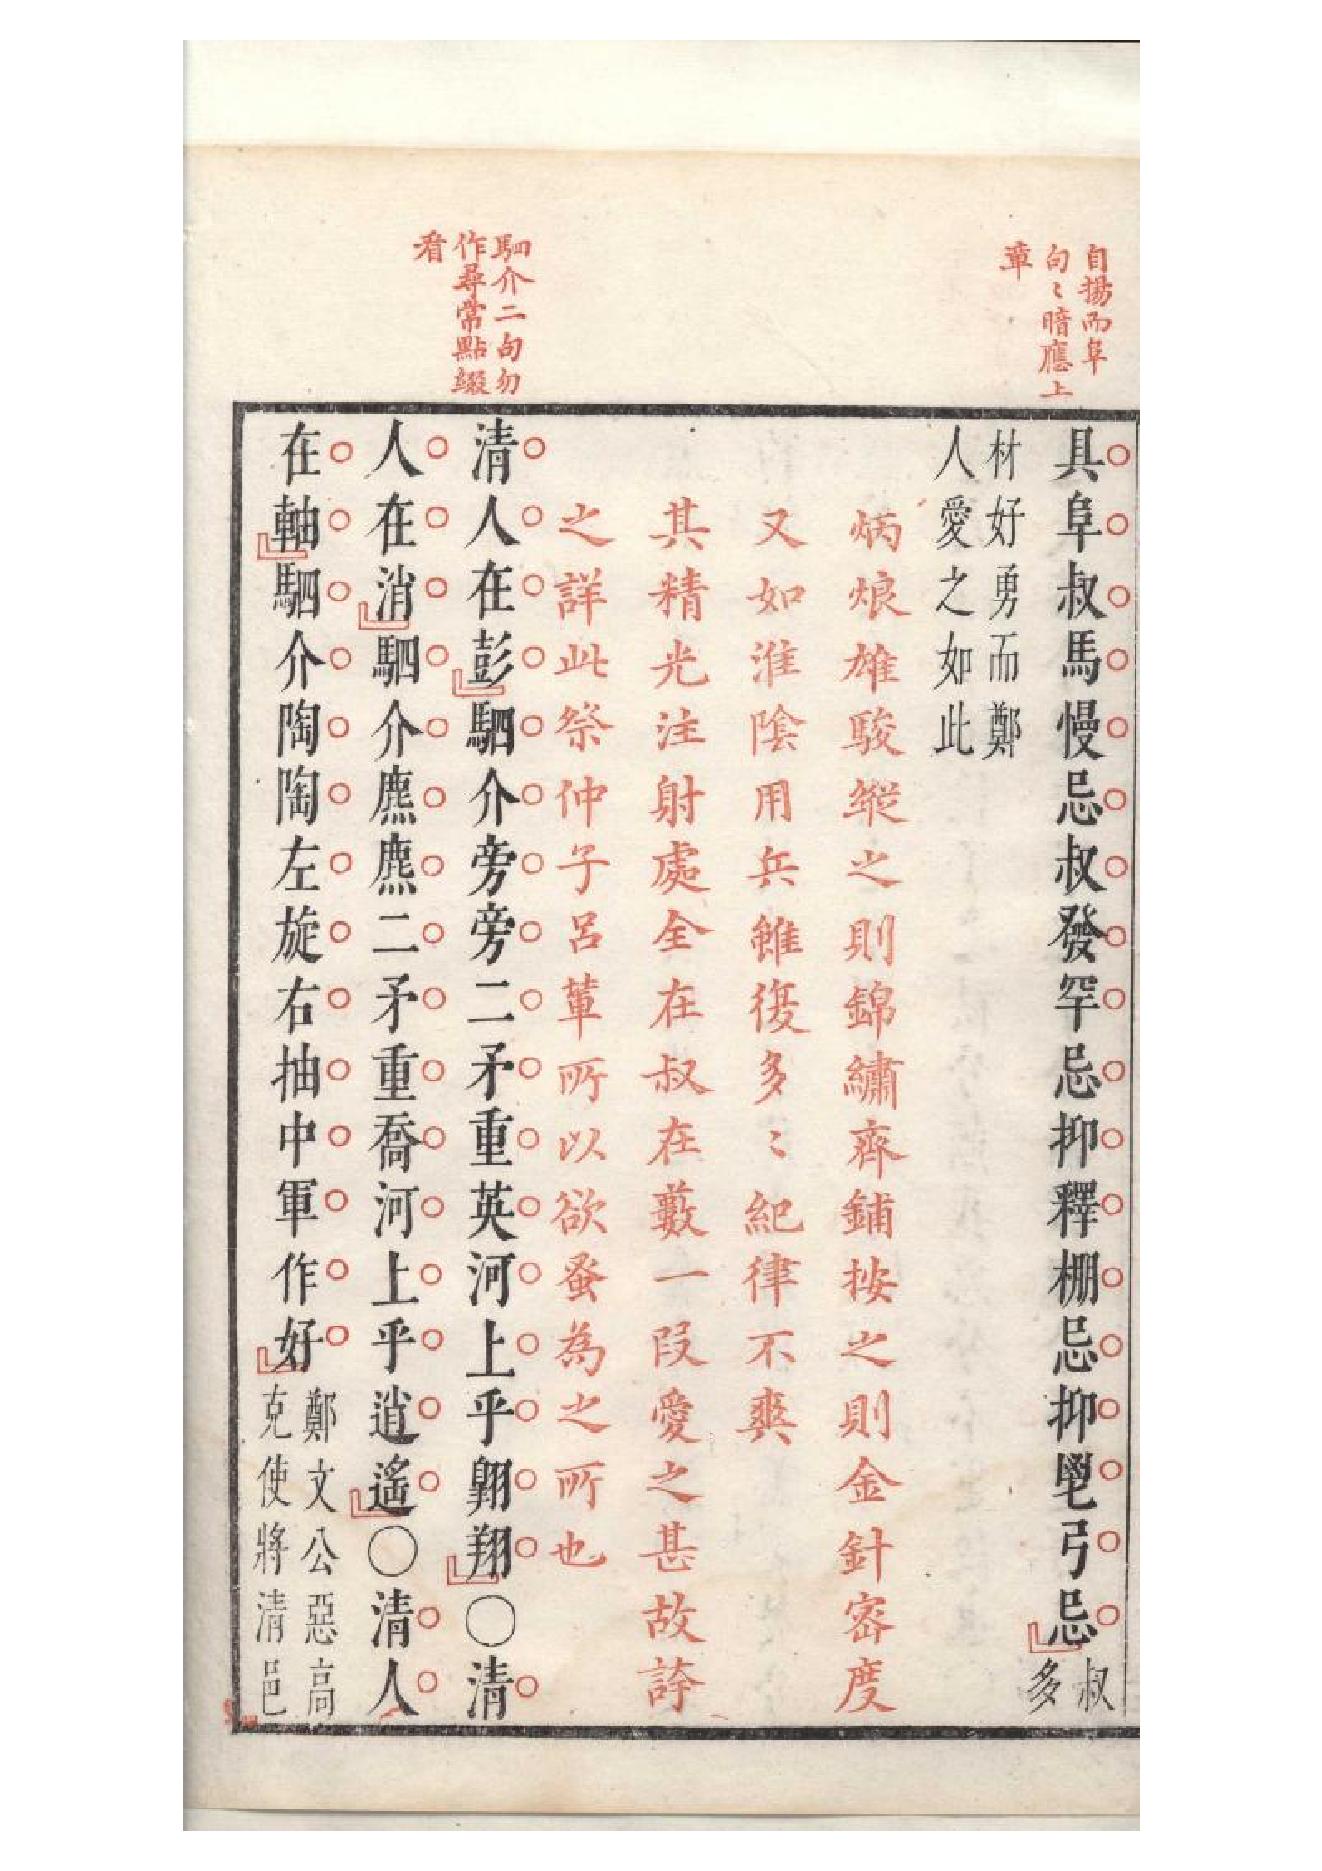 自揚而阜
句〻暗應上
章
駟介二句勿
作尋常點綴
看
具阜叔馬慢忌叔發罕忌抑釋棚忌抑鬯弓忌叔多
材好勇而鄭
人愛之如此
炳烺雄駿縱之則錦繡齊鋪按之則金針密度
又如淮陰用兵雖復多〻紀律不爽
其精光注射處全在叔在藪一段愛之甚故誇
之詳此祭仲子呂輩所以欲蚤為之所也
清人在彭駟介旁旁二矛重英河上乎翱翔〇清
人在消駟介麃麃二矛重喬河上乎逍遙〇清人
在軸駟介陶陶左旋右抽中軍作好鄭文公惡高
克使將清邑